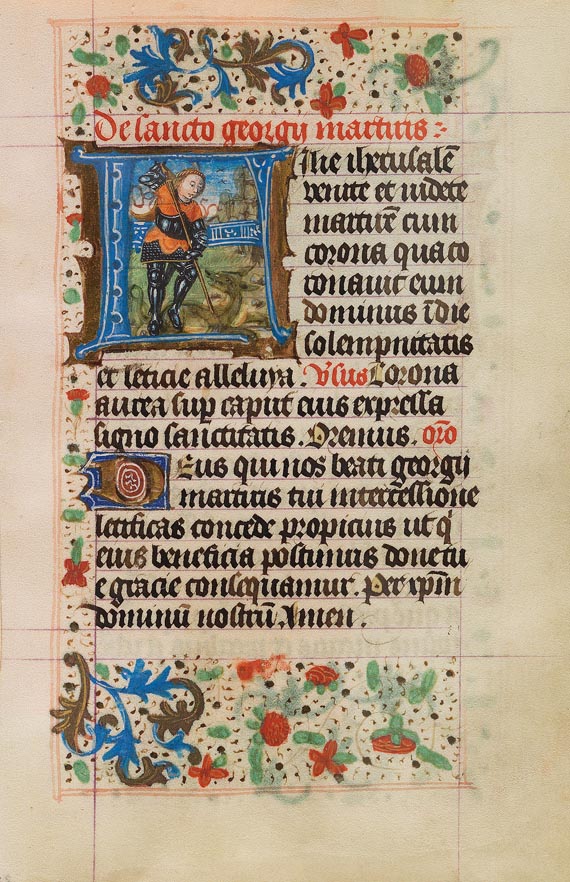 De sancto georgij martiris
Filie iherusalē
venite et videte
martirē cum
corona qua co
ronauit eum
dominus ī die
solempnitatis
et leticie alleluya . Vsus Corona
aurea sup caput eius expressa
signo sanctitatis . Oremus . oro
Deus qui nos beati georgij
martiris tui intercessione
letificas concede propicius ut q̄
eius beneficia poscimus donetu
e gracie consequamur . Per xp̄m
dominū nostrū Amen .